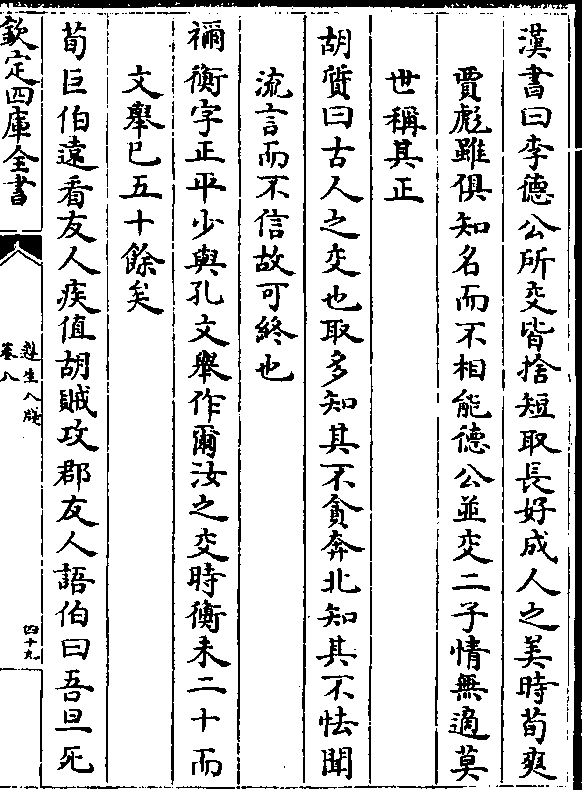 漢書曰李德公所交皆捨短取長好成人之美時荀爽
賈彪雖俱知名而不相能德公並交二子情無適莫
世稱其正
胡質曰古人之交也取多知其不貪奔北知其不怯聞
流言而不信故可終也
禰衡字正平少與孔文舉作爾汝之交時衡未二十而
文舉已五十餘矣
荀巨伯遠看友人疾值胡賊攻郡友人語伯曰吾旦死
欽定四庫全書
遵生八牋
卷八
四十九